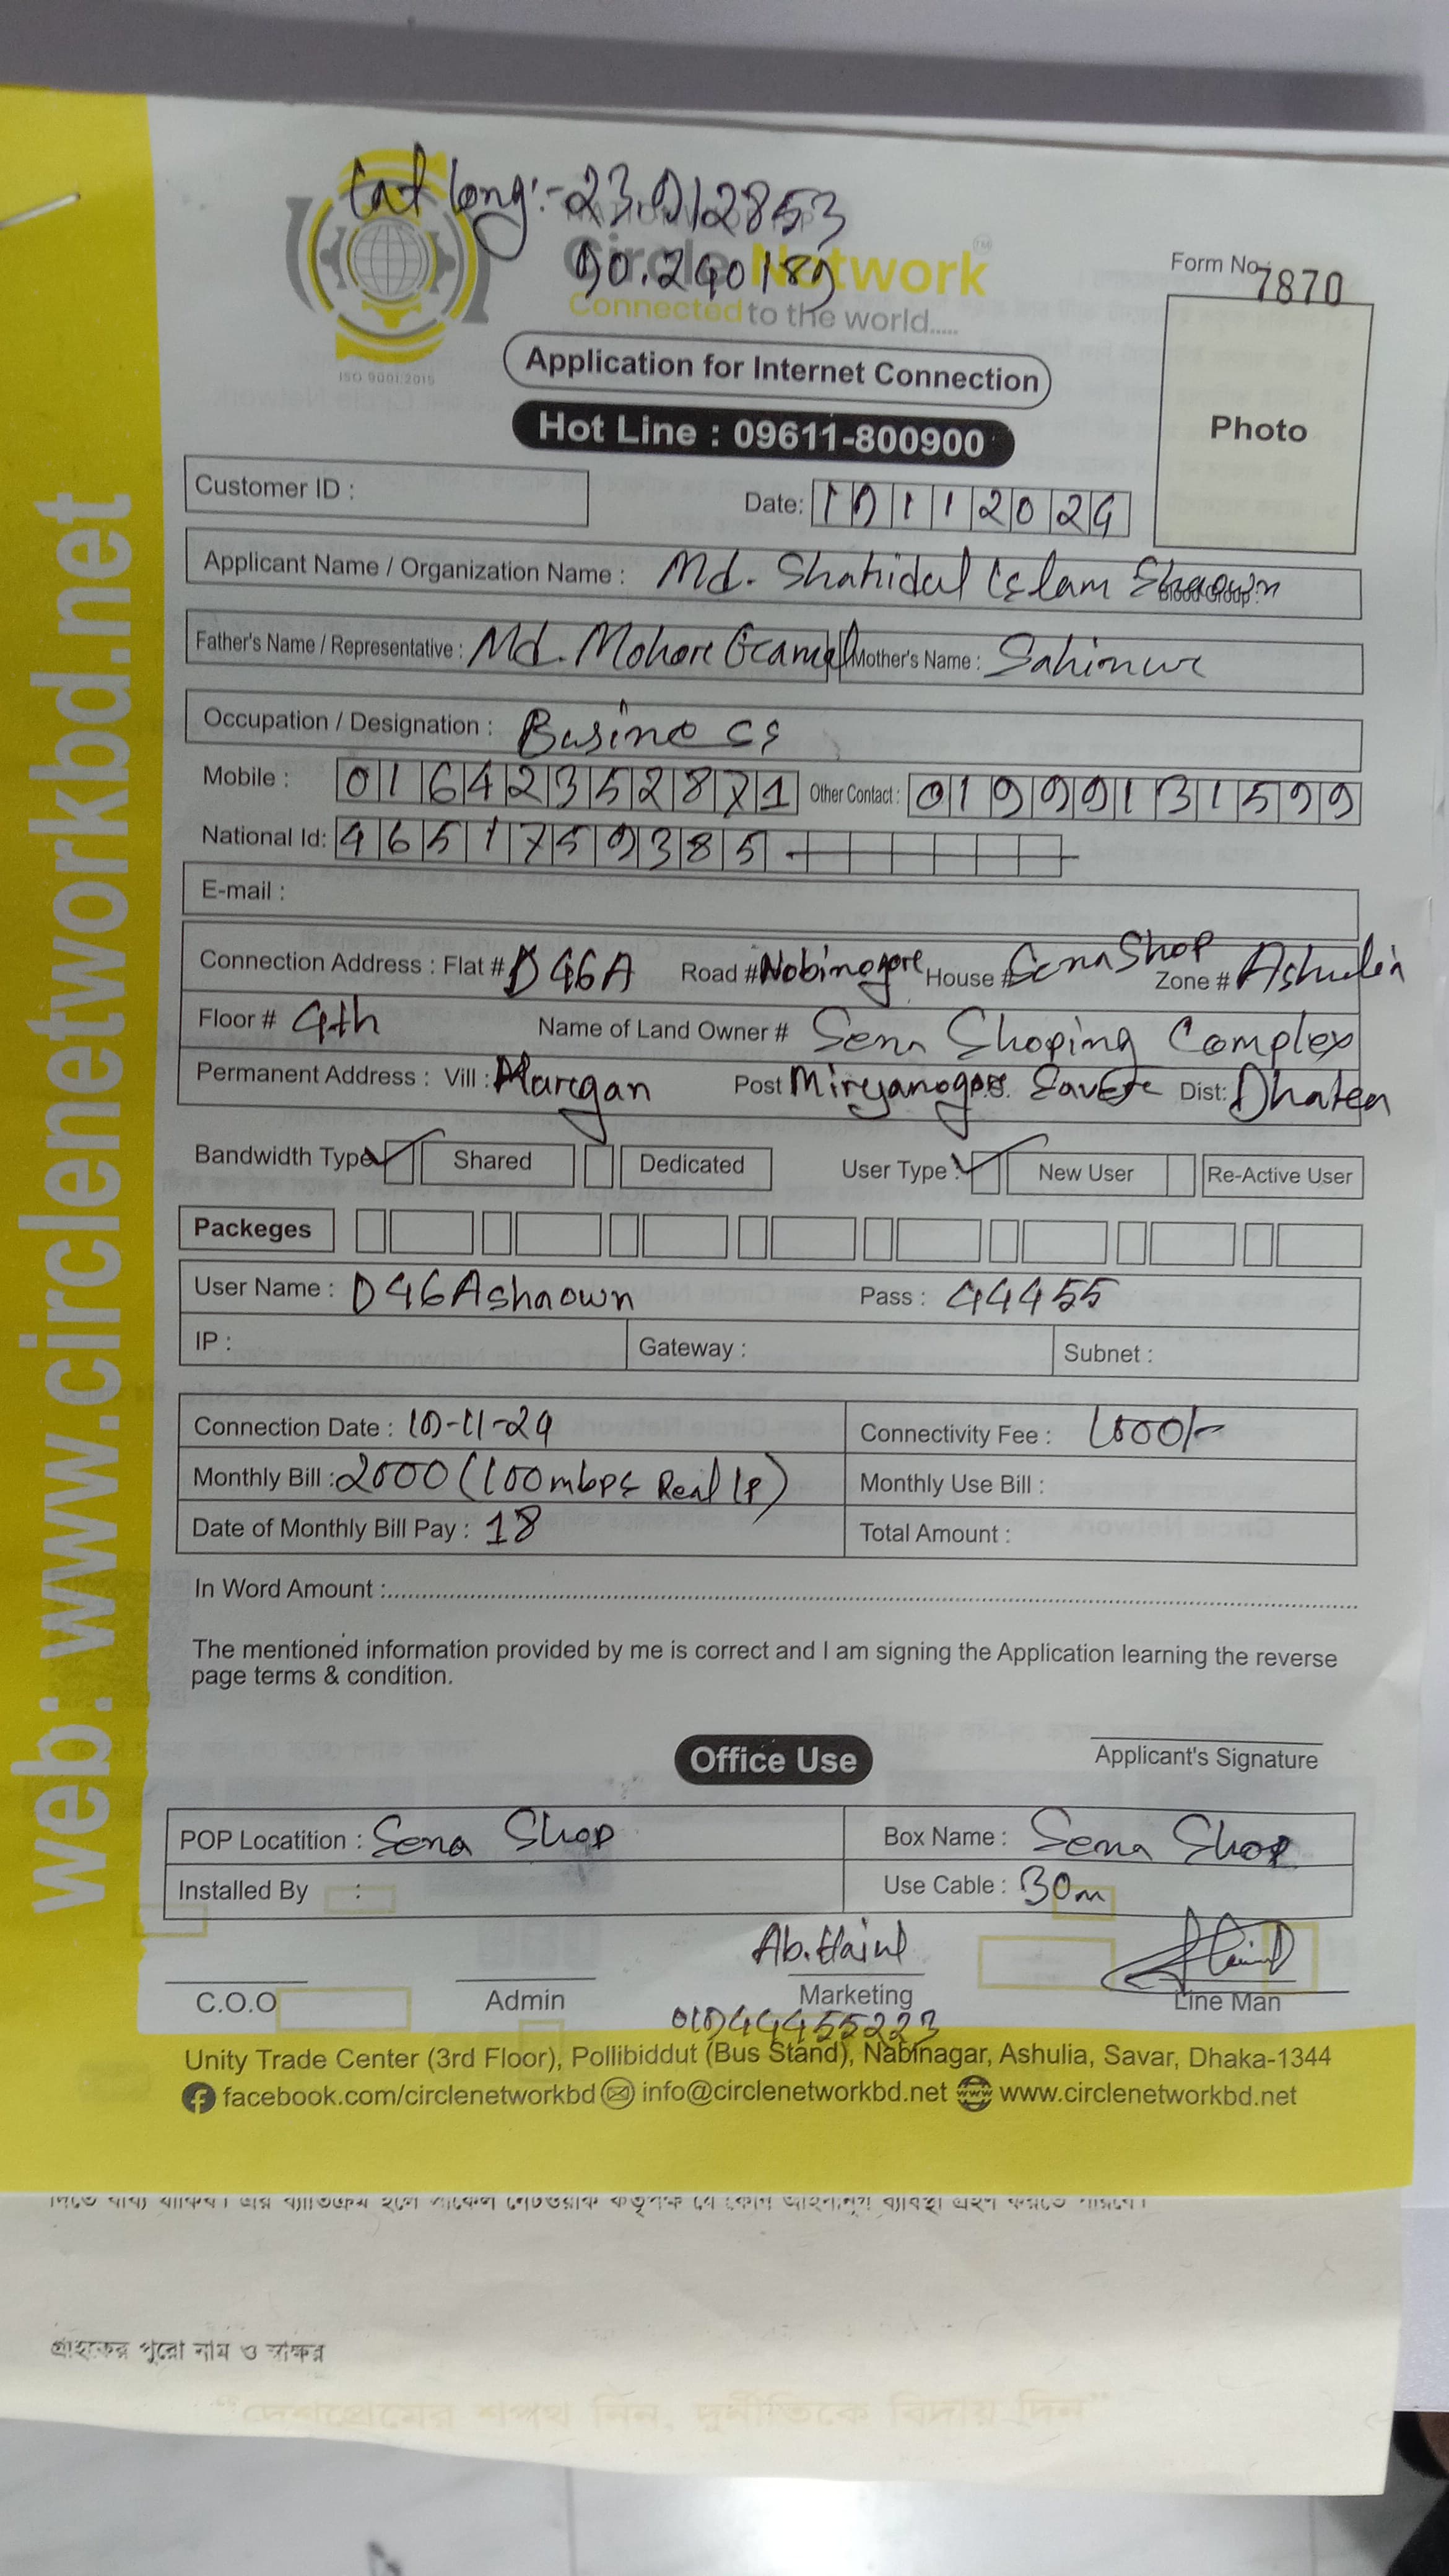 Lat long:-23.912853
90.240189
Circle Network™
Connected to the world.....
ISO 9001:2015
Form No. 7870
Application for Internet Connection
Photo
Hot Line : 09611-800900
Customer ID :
Date: 10112024
Applicant Name / Organization Name : Md. Shahidul Islam Shaown
Blood Group :
Father's Name / Representative : Md. Mohore Mother's Name :
Occupation / Designation : Business
Mobile : 01642352871 Other Contact : 01999131599
National Id: 4651759385
E-mail :
Connection Address : Flat # D46A Road # Nobinogore House # Sena Shop Zone # Ashulia
Floor # 4th Name of Land Owner # Sena Shoping Complex
Permanent Address : Vill : Post P.S. Dist:
Bandwidth Type Shared Dedicated User Type : New User Re-Active User
Packeges
User Name : D46Ashaown Pass : 44455
IP : Gateway : Subnet :
Connection Date : 10-11-24 Connectivity Fee : 1000/-
Monthly Bill : 2000 (100mbps Real Ip) Monthly Use Bill :
Date of Monthly Bill Pay : 18 Total Amount :
In Word Amount :
The mentioned information provided by me is correct and I am signing the Application learning the reverse
page terms & condition.
Office Use
Applicant's Signature
POP Locatition : Sena Shop Box Name : Sena Shop
Installed By : Use Cable : 30m
C.O.O Admin Marketing Line Man
01944455223
Unity Trade Center (3rd Floor), Pollibiddut (Bus Stand), Nabinagar, Ashulia, Savar, Dhaka-1344
facebook.com/circlenetworkbd info@circlenetworkbd.net www www.circlenetworkbd.net
web: www.circlenetworkbd.net
গ্রাহকের পুরো নাম ও স্বাক্ষর
"দেশপ্রেমের শপথ নিন, দুর্নীতিকে বিদায় দিন"